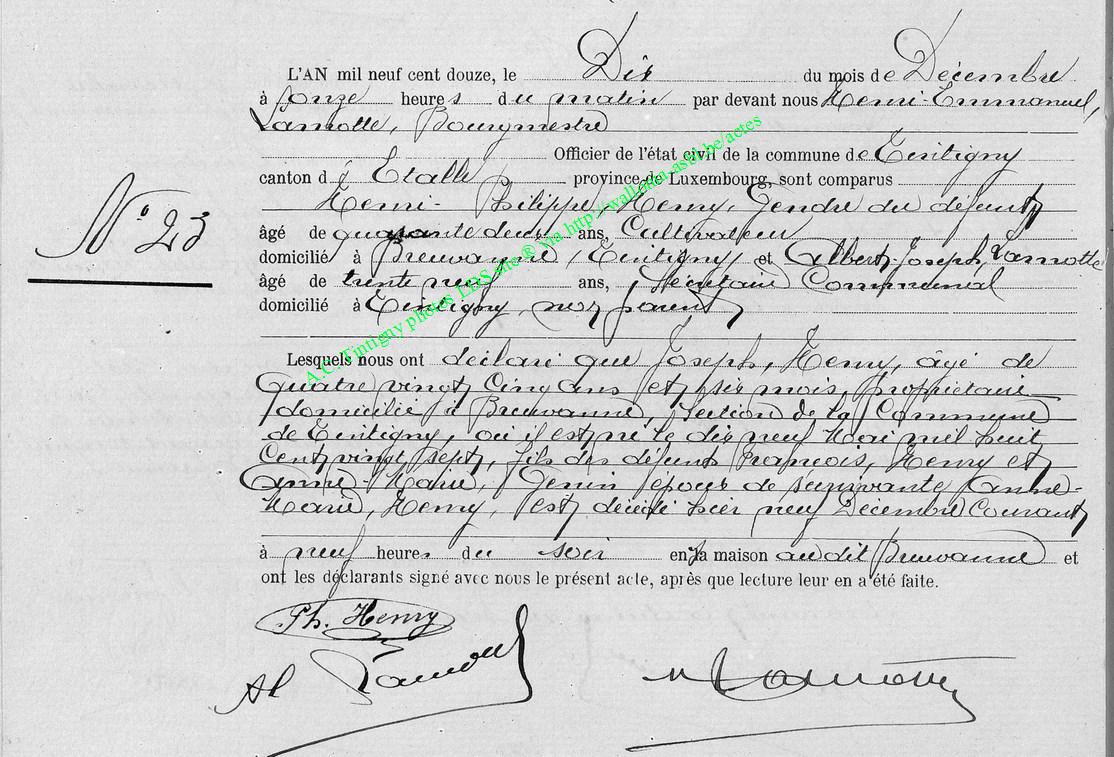 L'AN mil neuf cent douze, le Dix du mois de Décembre
à onze heures du matin par devant nous Henri-Emmanuel,
Lamotte, Bourgmestre
Officier de l'état civil de la commune de Tintigny
canton d'Etalle province de Luxembourg, sont comparus
Henri-Philippe, Henry, Gendre du défunt
N° 23
âgé de quarante deux ans, Cultivateur
domicilié à Breuvanne, Tintigny et Albert-Joseph, Lamotte
âgé de trente neuf ans, Secrétaire Communal
domicilié à Tintigny, non parent
Lesquels nous ont déclaré que Joseph, Henry, âgé de
Quatre vingt Cinq ans et six mois, Propriétaire
domicilié à Breuvanne, section de la Commune
de Tintigny, où il est né le dix neuf Mai mil huit
Cent vingt sept, fils des défunts François, Henry et
Anne-Marie, Genin époux de survivante Anne-
Marie, Henry, est décédé hier neuf Décembre Courant
à neuf heures du soir en sa maison audit Breuvanne et
ont les déclarants signé avec nous le présent acte, après que lecture leur en a été faite.
Ph. Henry
Al Lamotte
Lamotte
A.C. Tintigny photos LDS site ® via http://wallonia-asbl.be/actes